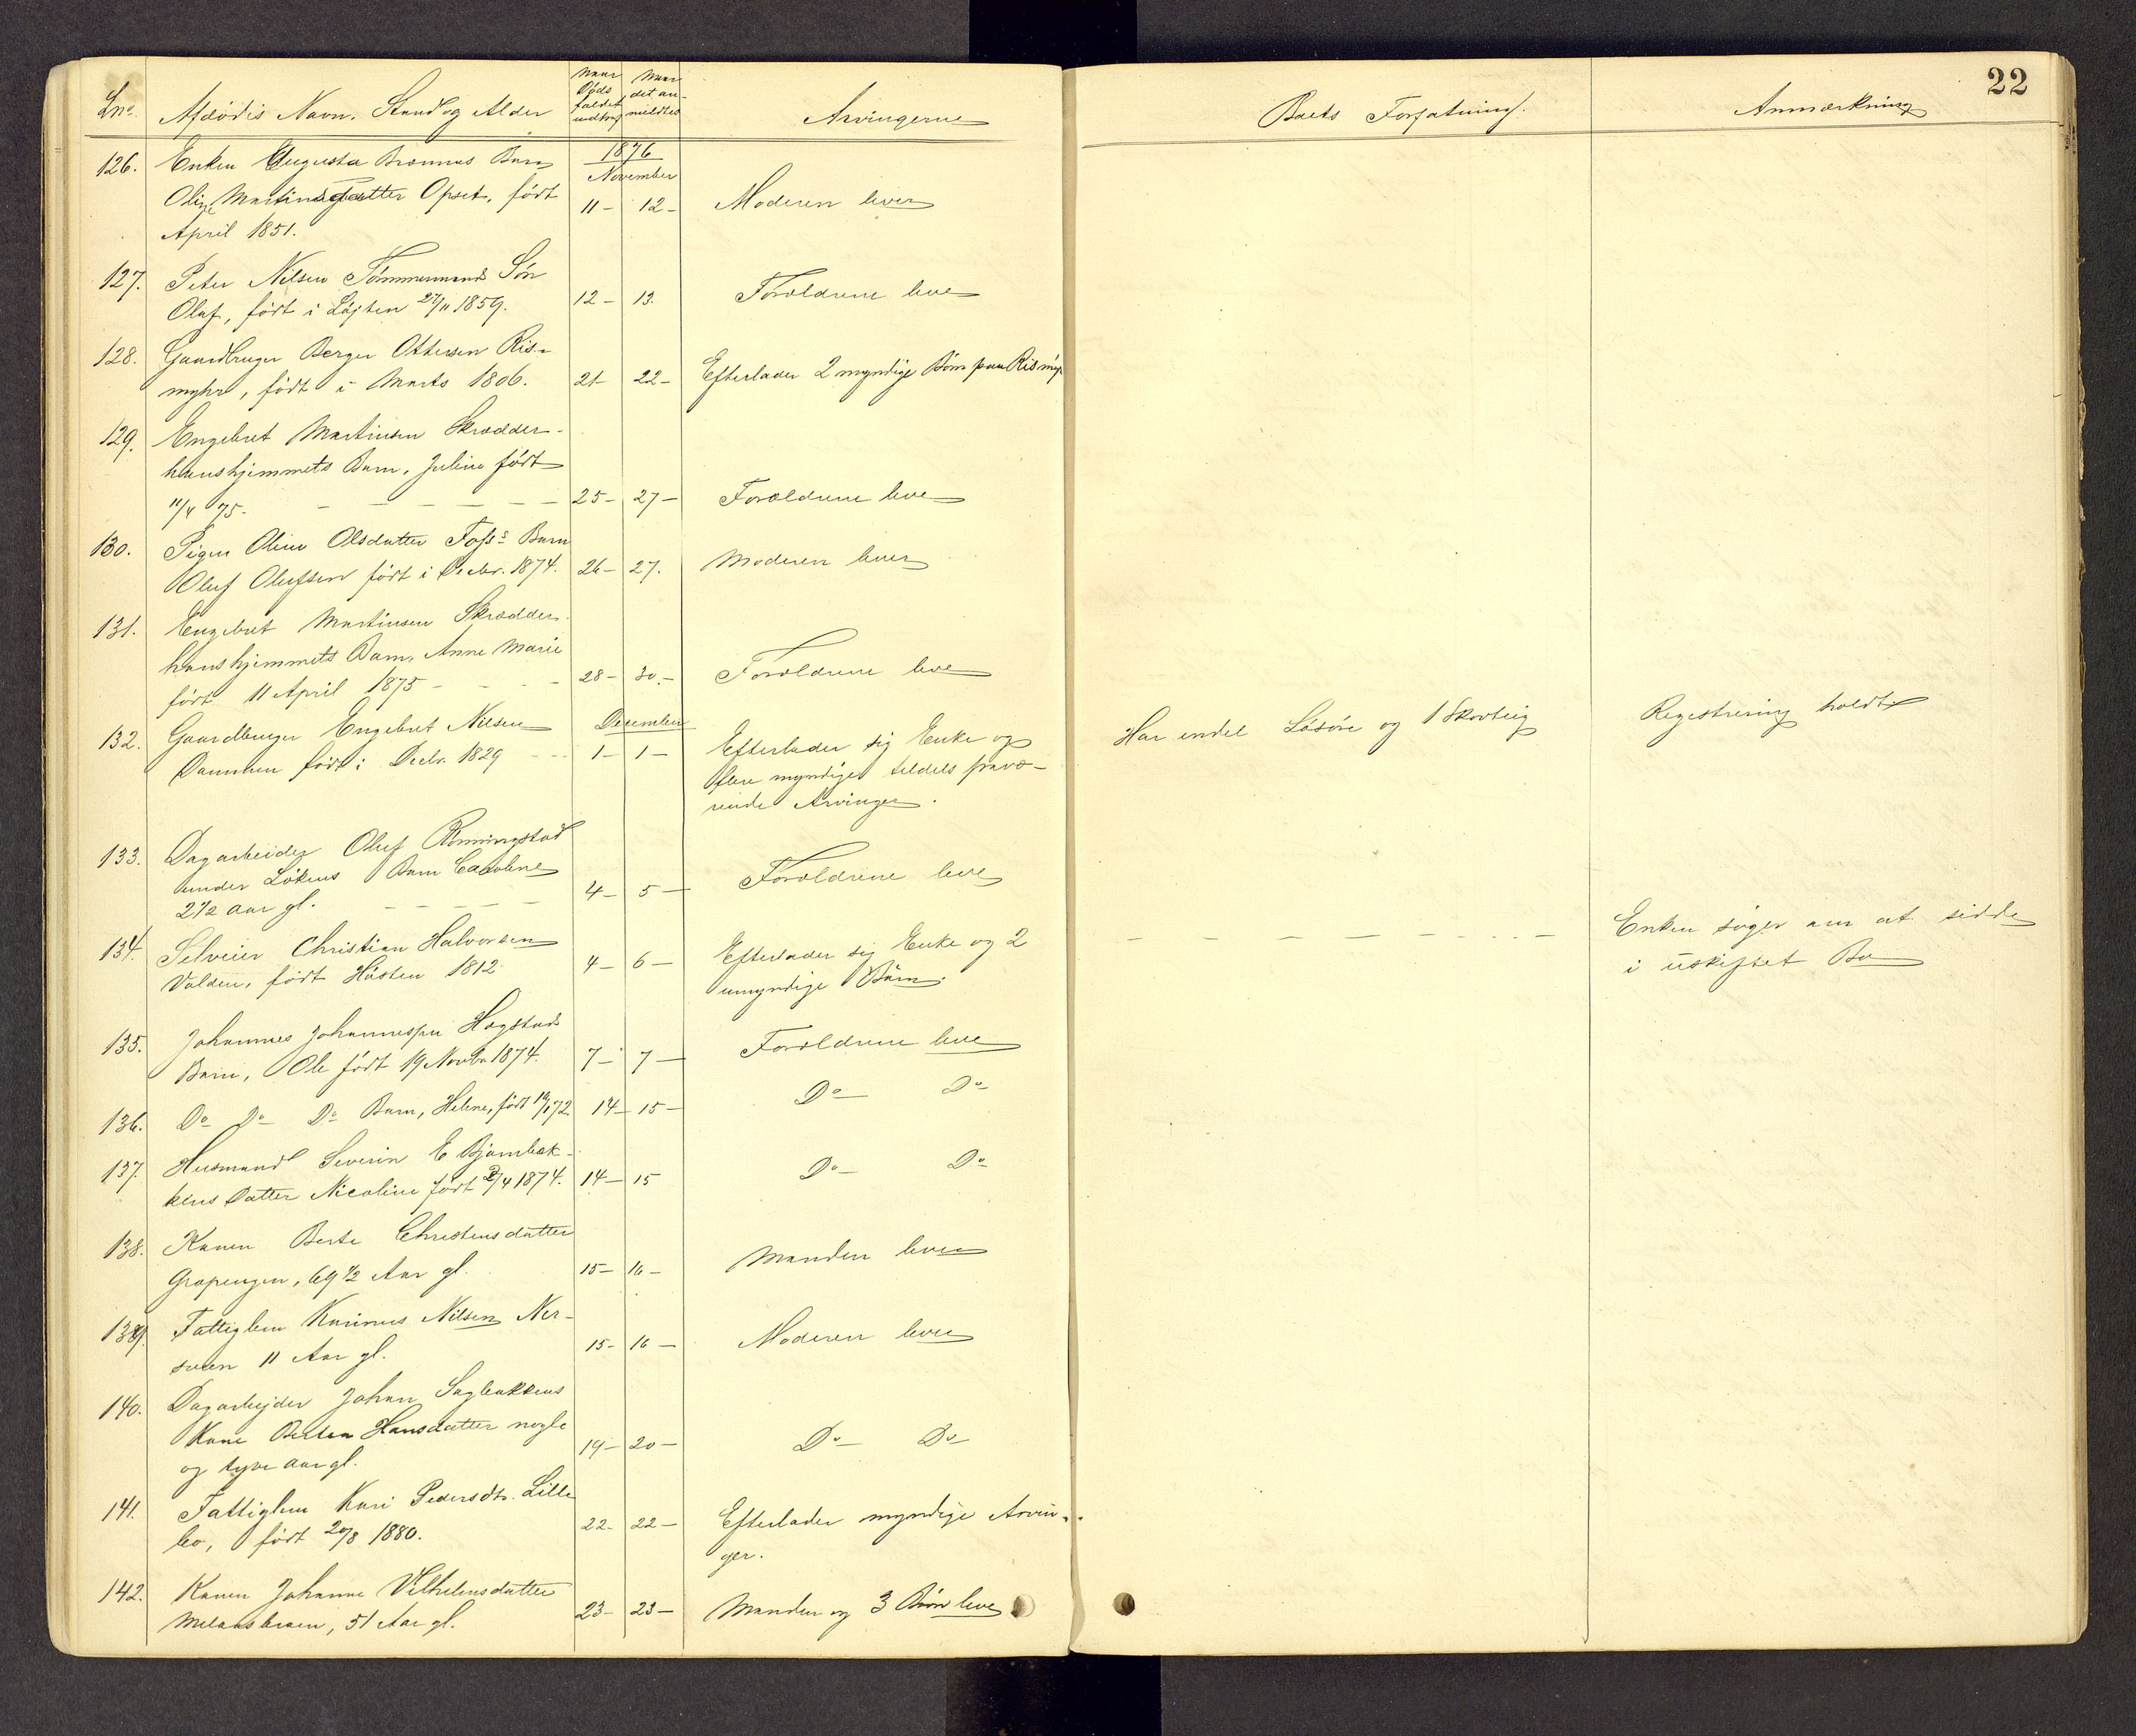 22
Lno. Afdødis Navn, Stand og Alder
Naar Døds faldet indtraf
Naar det an- meldtes
Arvingerne
Boets Forfatning.
Anmærkning
1876
November
126. Enken Augusta Brennas Barn
Oline Martinsdatter Opset, født 11 - 12 - Moderen lever
April 1851.
127. Peter Nilsen Tømmermands Søn
Oluf, født i Løjten 27/11 1859. 12 - 13. Forældrene leve
128. Gaardbruger Berger Ottersen Ris-
myhr, født i Marts 1806. 21- 22- Efterlader 2 myndige Børn paa Rismyr
129. Engebret Martinsen Skrædder-
hanshjemmets Barn, Juline født
11/4 75. - - - - - 25- 27- Forældrene leve
130. Pigen Oline Olsdatter Foss's Barn
Oluf Olufsen født i Decbr. 1874. 26- 27. Moderen lever
131. Engebret Martinsen Skrædder-
hanshjemmets Barn, Anne Marie
født 11 April 1875 - - - 28- 30.- Forældrene leve
December
132. Gaardbruger Engebret Nilsen
Dammen født i Decbr. 1829 - - 1- 1- Efterlader sig Enke og
flere myndige tildels fravæ-
rende Arvinger.
Har endel Løsøre og 1 Skovteig
Registrering holdt
133. Dagarbeider Oluf Rønningstad
under Løkens Barn Caroline
2 1/2 aar gl. - - - - 4- 5- Forældrene leve
134. Selveier Christian Halvorsen
Volden, født Høsten 1812 4- 6- Efterlader sig Enke og 2
umyndige Børn.
- - - - - - - -
Enken søger om at sidde
i uskiftet Bo
135. Johannes Johannessen Hogstads
Barn, Ole født 19 Novbr. 1874. 7- 7- Forældrene leve
136. Do Do Do Barn, Helene, født 14/1 72 14- 15- Do Do
137. Husmand Severin E Bjørnbak-
kens Datter Nicoline født 2/4 1874. 14- 15 Do Do
138. Konen Berte Christensdatter
Grapengen, 69 1/2 Aar gl. 15- 16- Manden lever
139. Fattiglem Karinus Nilsen Ner-
sveen 11 Aar gl. 15- 16- Moderen lever
140. Dagarbejder Johan Sagbakkens
Kone Berthea Hansdatter nogle
og tyve aar gl. 19- 20- Do Do
141. Fattiglem Kari Pedersdtr. Lille
bo, født 20/8 1880. 22- 22- Efterlader myndige Arvin-
ger.
142. Konen Johanne Vilhelmsdatter
51 Aar gl. 23- 23- Manden og 3 Børn leve